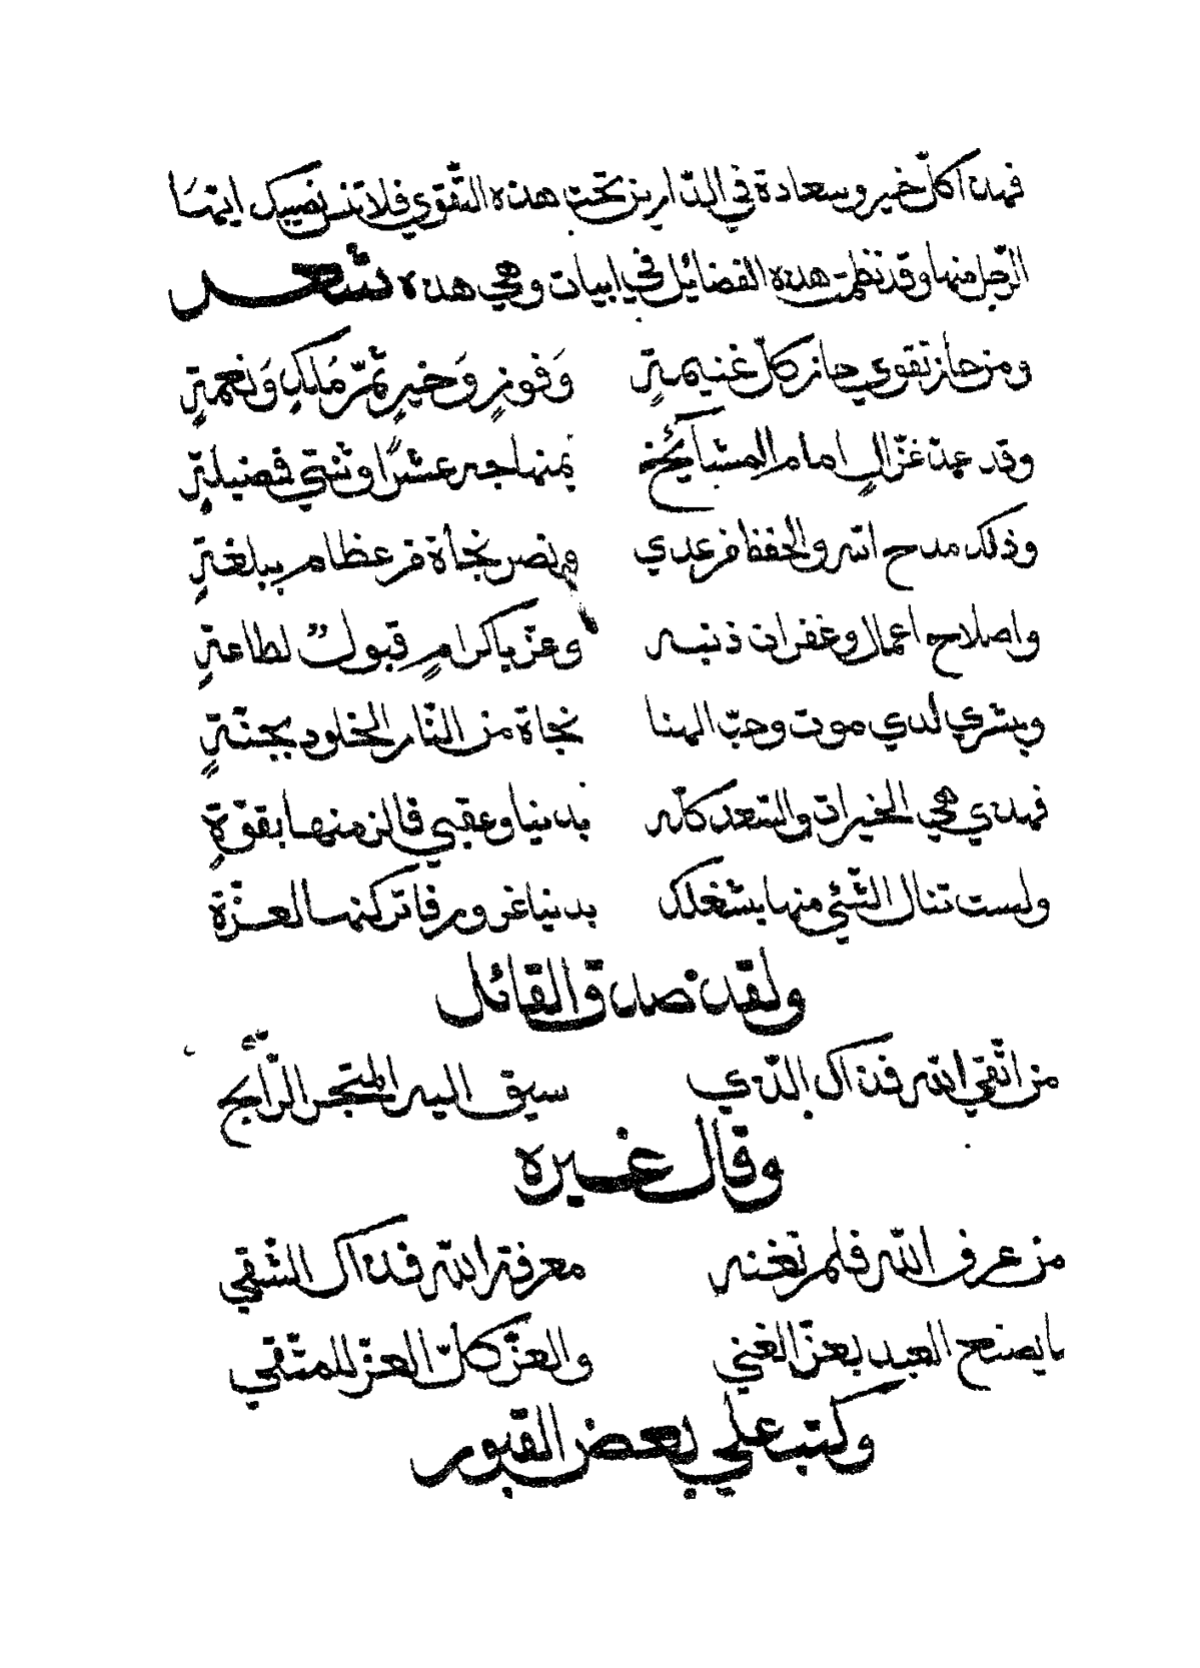 فهذا كلّ خير وسعادة في الدّارين تحت هذه التّقوي فلا تنس نصيبك ايّهَا
الرّجل منها وقد نظمت هذه الفضائل في ابيات وهي هذه شعر
ومن حاز تقوي حاز كلّ غنيمةٍ وَفوزٍ وَخيرٍ ثمّ مُلكٍ وَنعمةٍ
وقد عدّ غزّالي امام المشايخ بمنهاجه عشرًا وثنتي فضيلةٍ
وذلك مدح الله والحفظ من عدي ونصر نجاة من عظام ببلغةٍ
واصلاح اعمال وغفران ذنبه وعزّ باكرامٍ قبولٌ لطاعةٍ
وبشري لدي موت وحبّ الهنا نجاة من النّار الخلود بجنّةٍ
فهذي هي الخيرات والسّعد كلّه بدنيا وعقبي فالزمنها بقوّةٍ
ولست تنال الشّئي منها بشغلك بدنيا غرور فاتركنها لعزّة
ولقد صدق القائل
من اتّقي الله فذاك الّذي سيق اليه المتجر الرّابح
وقال غيره
من عرف الله فلم تغنه معرفة الله فذاك الشّقي
ما يصنع العبد بعزّ الغني والعزّ كلّ العزّ للمتّقي
وكتب علي بعض القبور